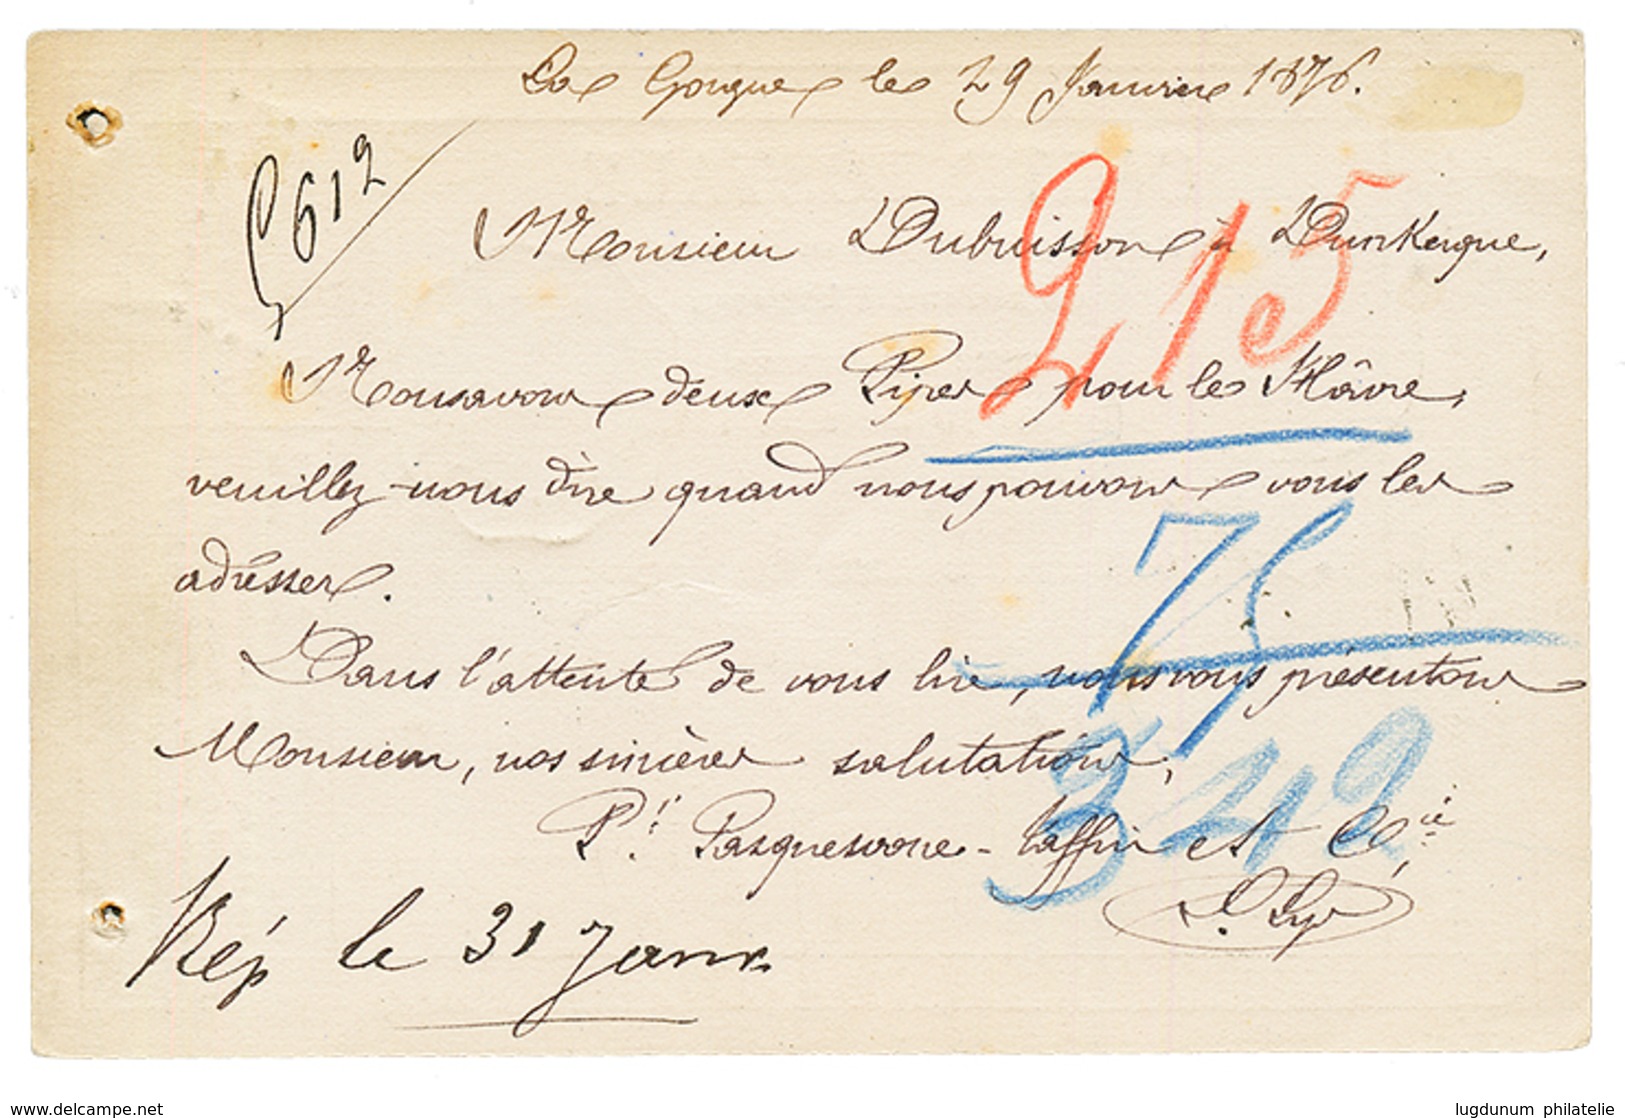 La Gorgue le 29 Janvier 1876.
612
Monsieur Dubuisson à Dunkerque,
215
Nous avons deux Pipes pour le Hâvre,
veuillez-nous dire quand nous pouvons vous les
adresser.
75
Dans l'attente de vous lire, nous vous présentons
Monsieur, nos sincères salutations,
342
Pr. Pasquesoone-Taffin et Cie
Rép le 31 Janv.
www.delcampe.net
lugdunum philatelie